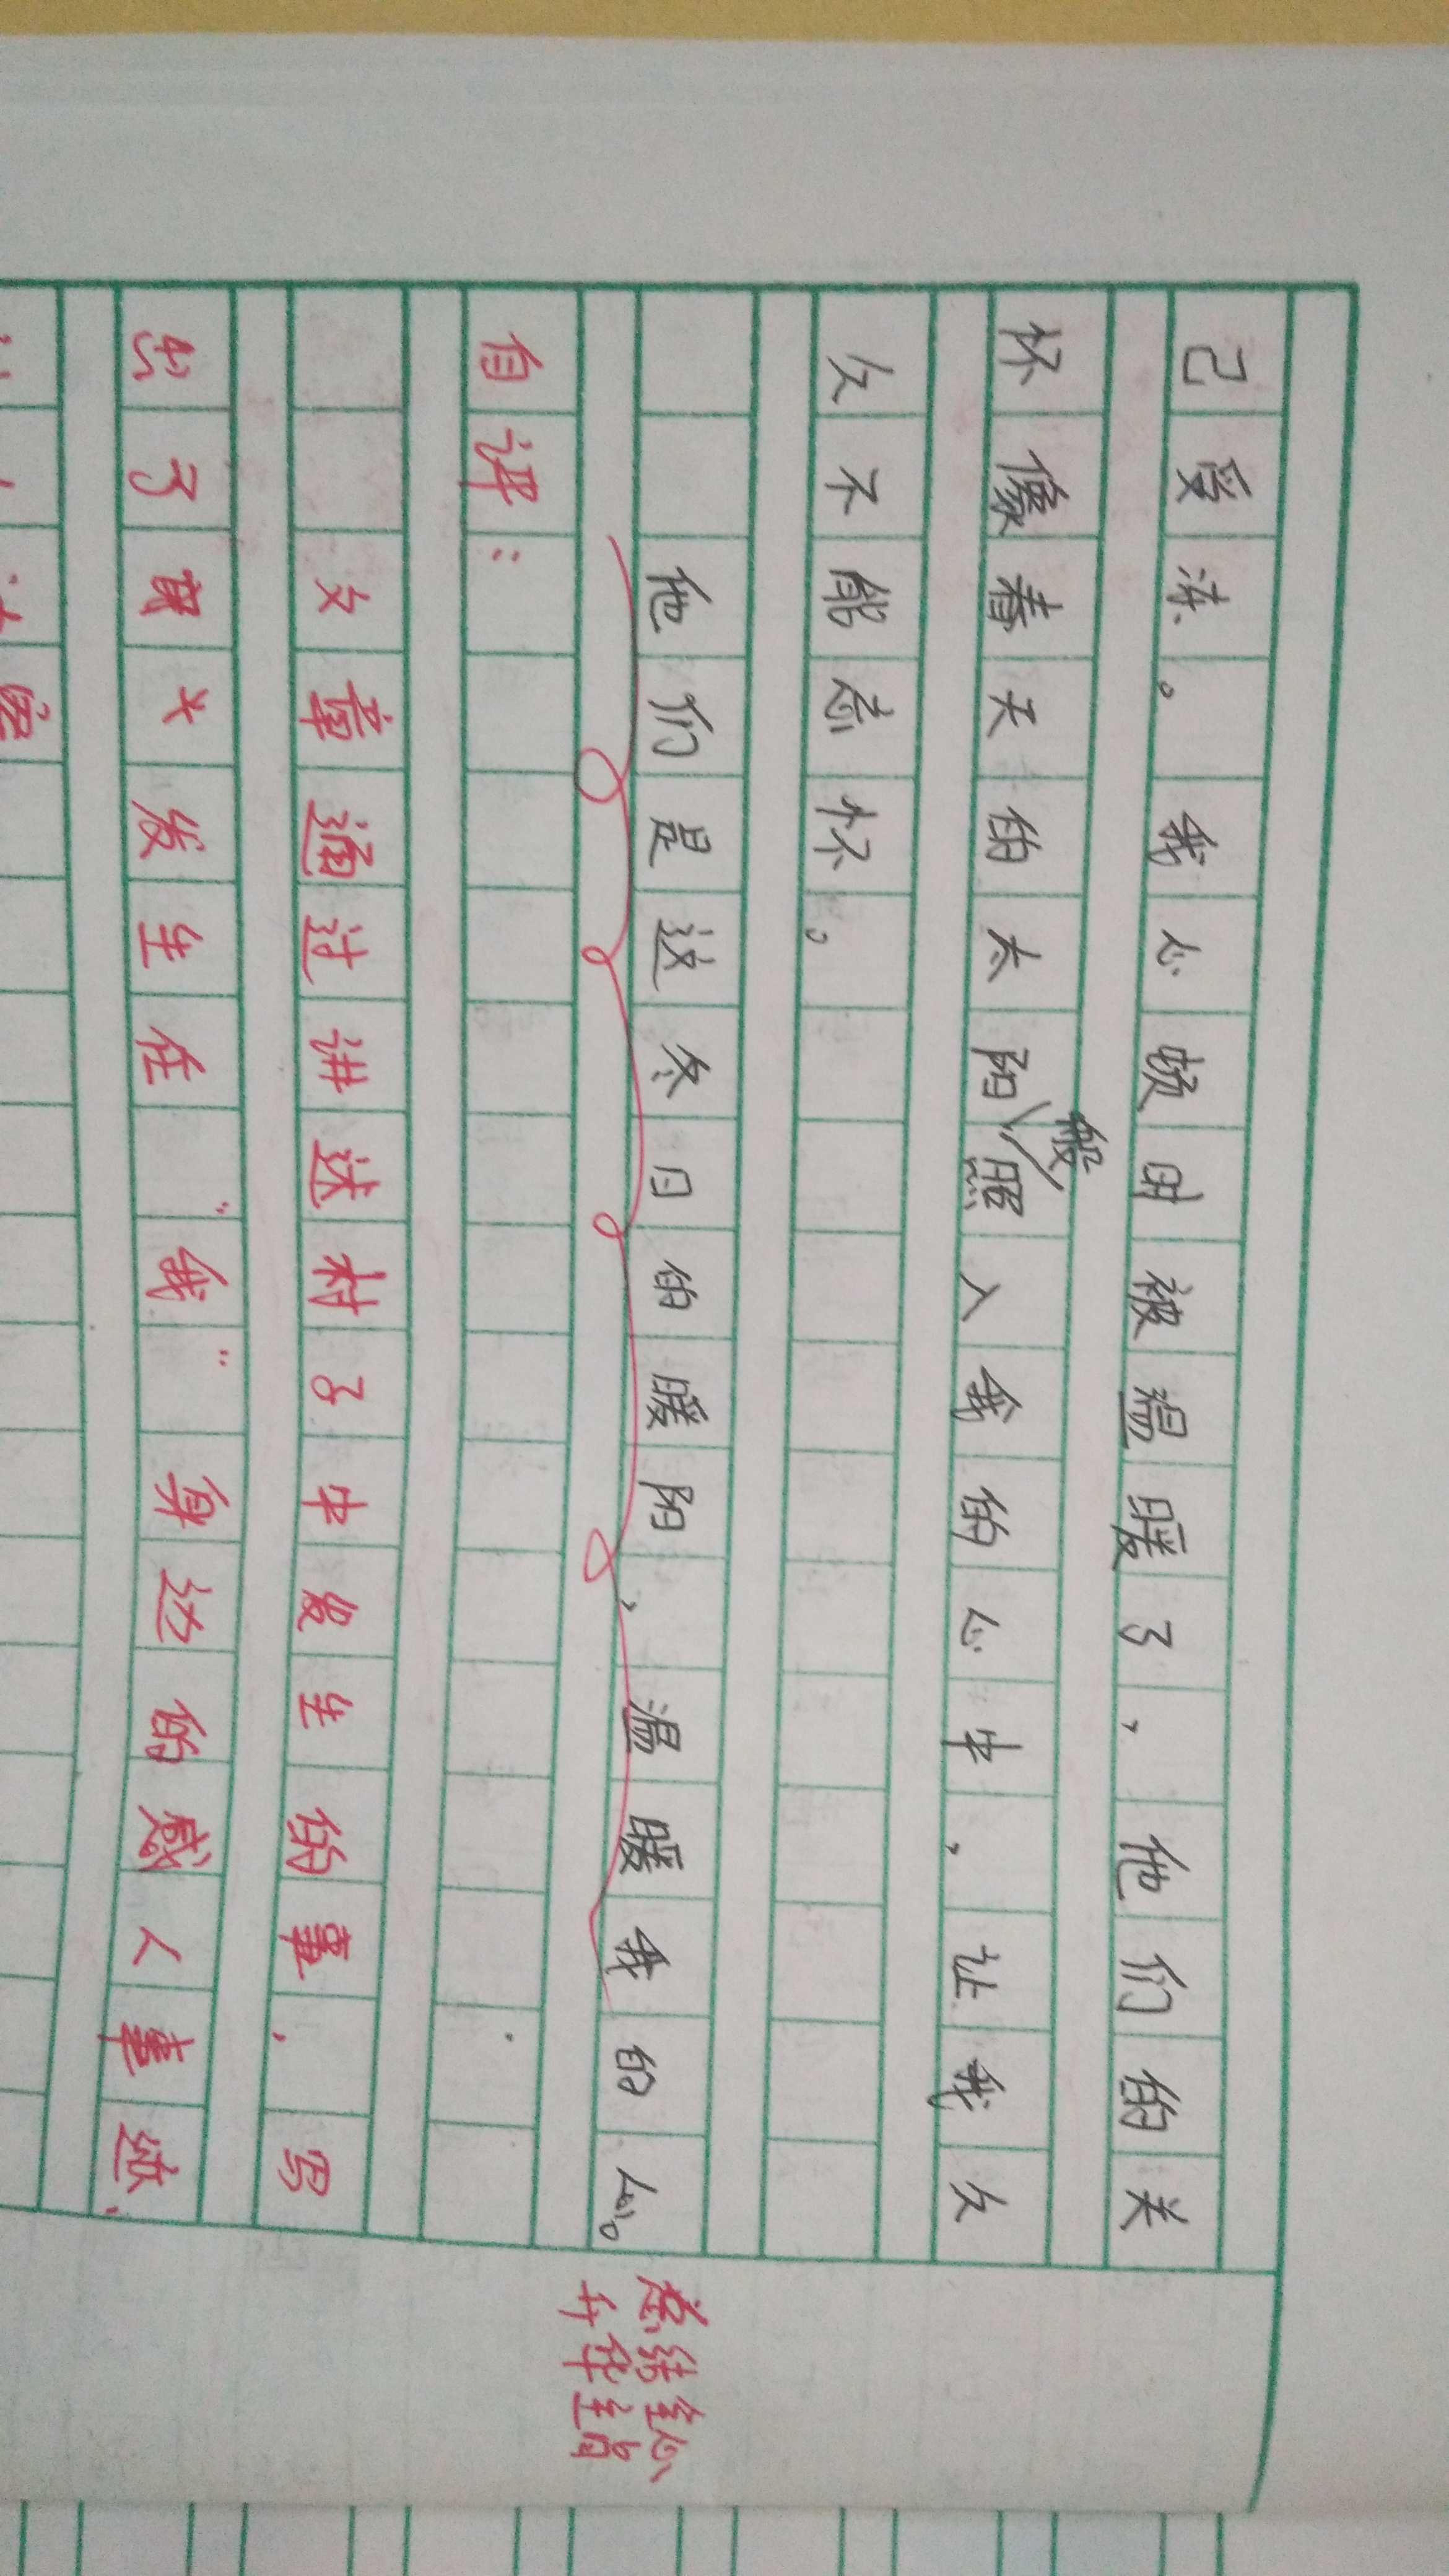 己受冻。我心顿时被温暖了，他们的关
怀像春天的太阳般照入我的心中，让我久
久不能忘怀。
他们是这冬日的暖阳，温暖我的心。
总结全心
升华主旨
自评：
文章通过讲述村子中发生的事，写
出了寒冬发生在“我”身边的感人事迹，